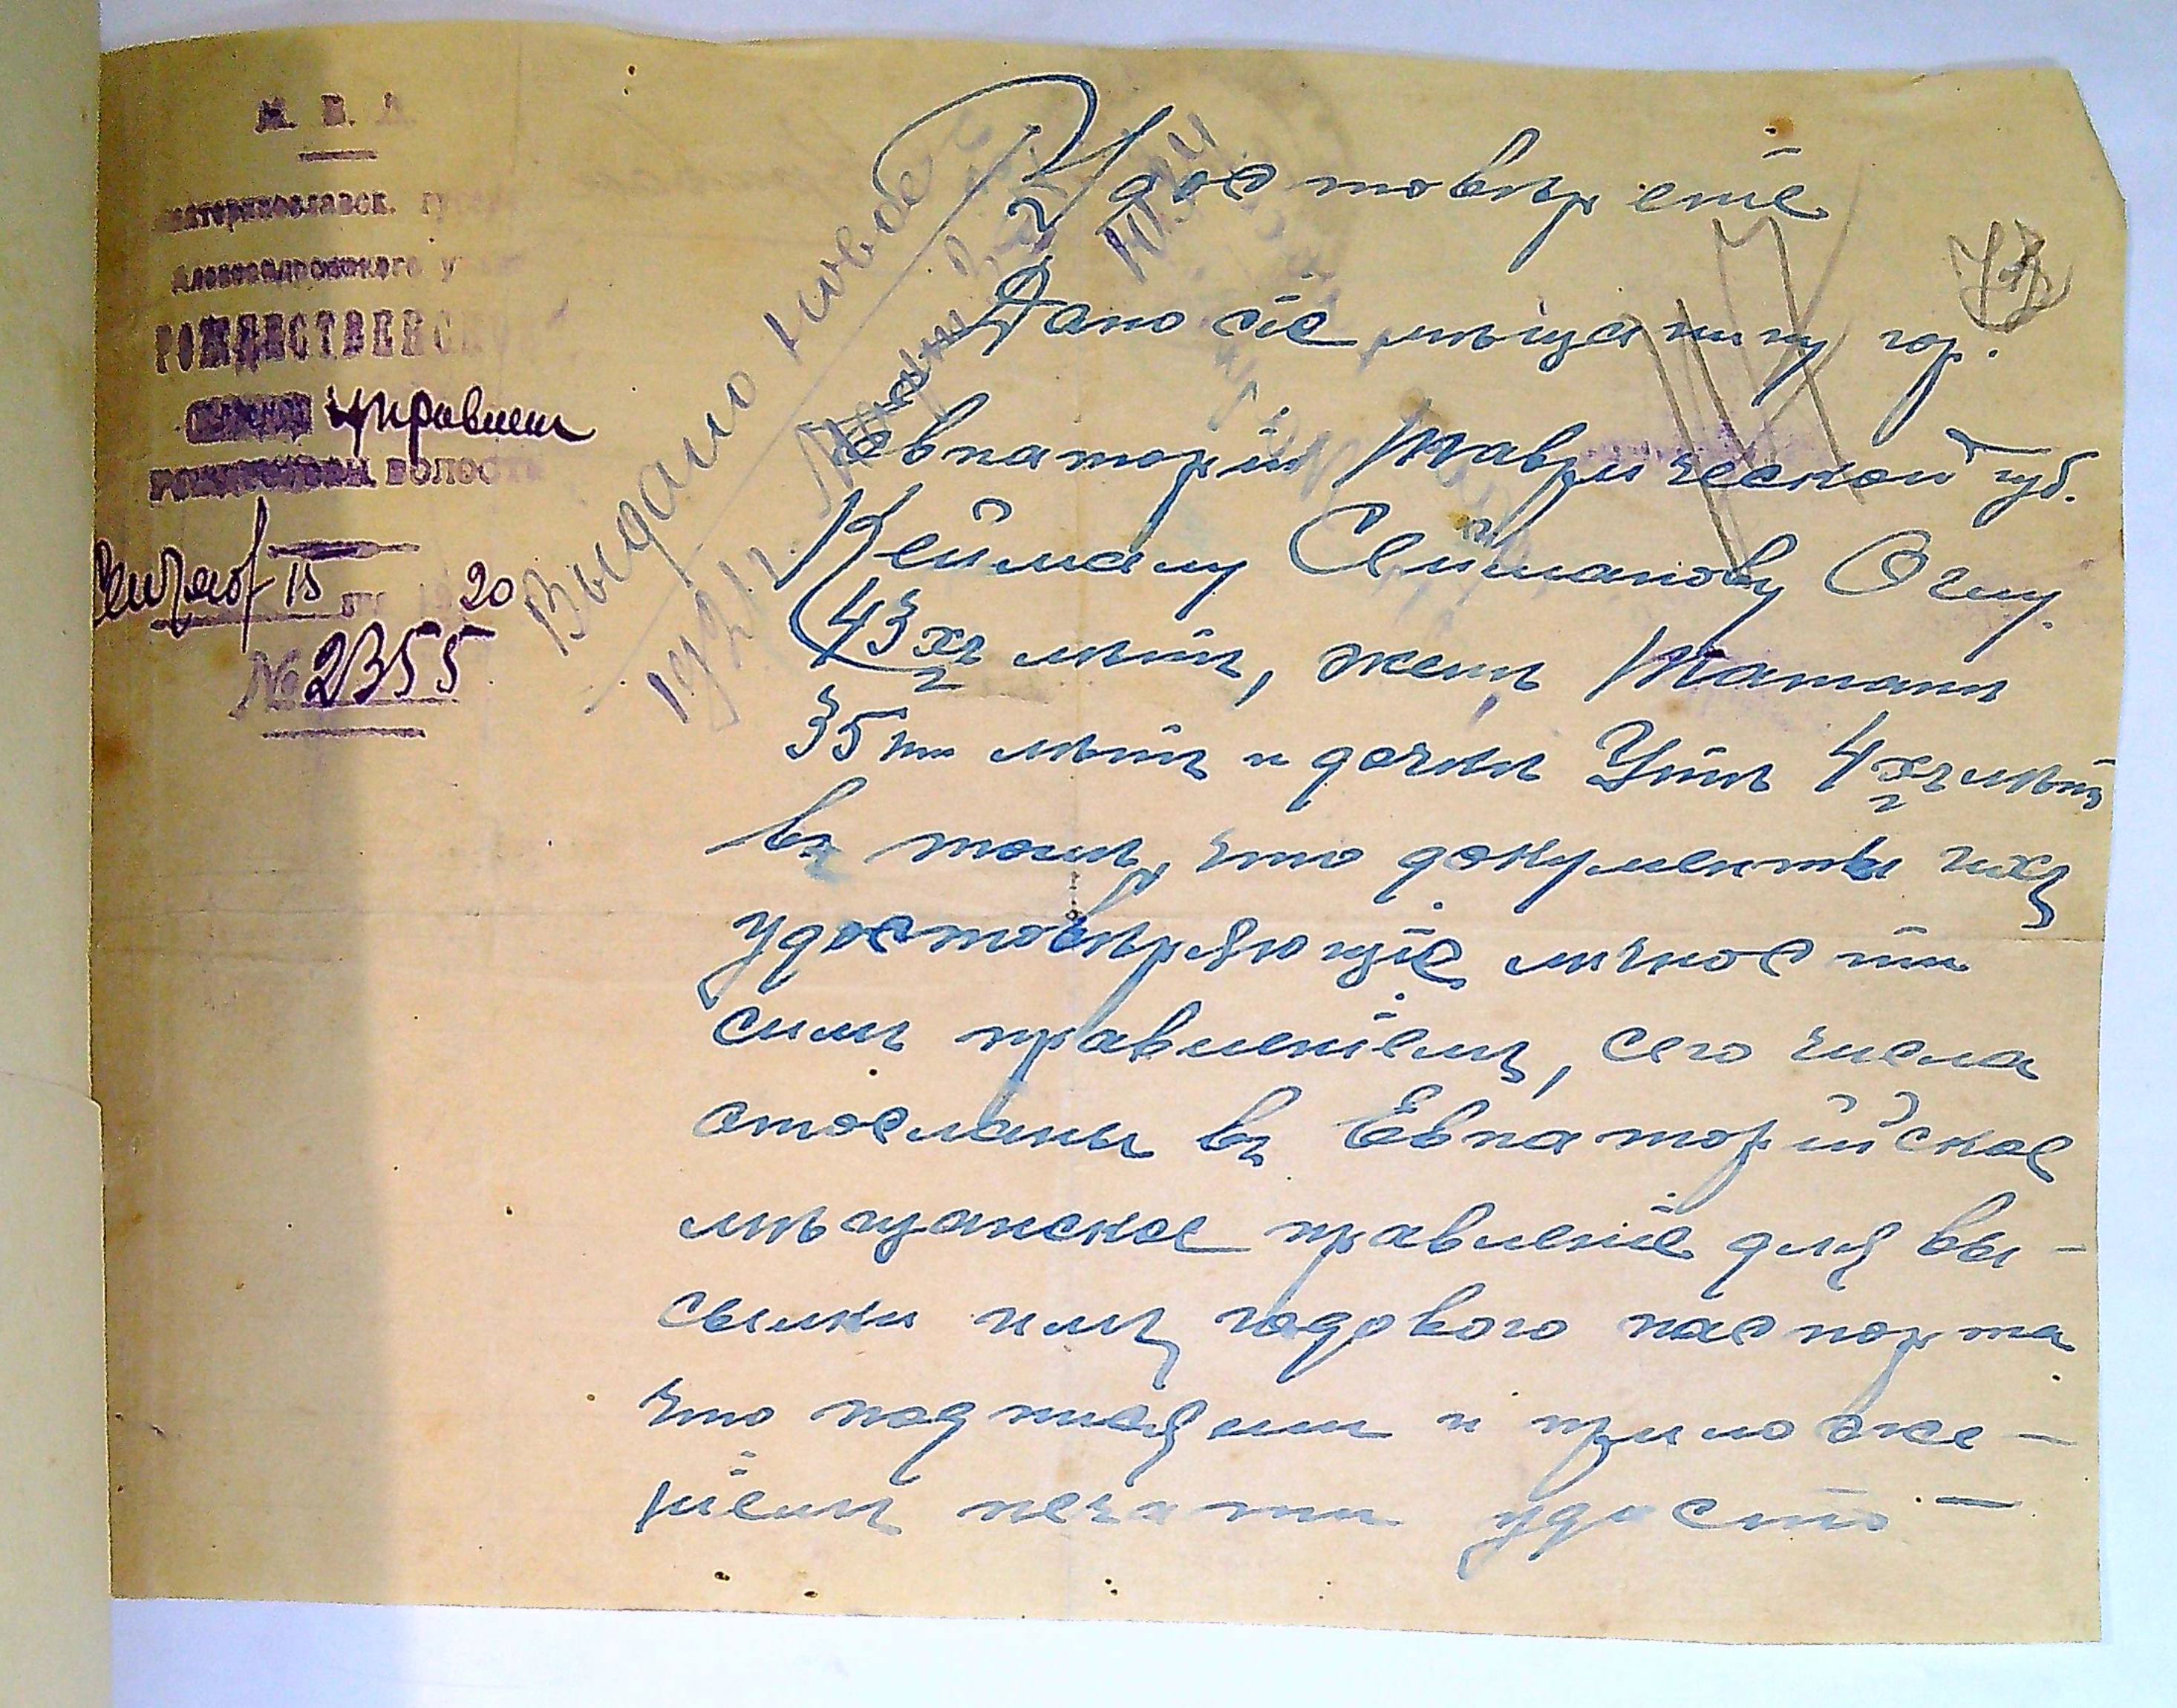 М. В. Д.
Екатеринославск. губер
Александровскаго у
РОЖДЕСТВЕНСК
управлен
ВОЛОСТ
15 20
№ 2355
Выдано новое
1921 г.
Удостовѣреніе
Дано сіе мѣщанину гор.
Евпаторіи Таврической губ.
Кейману Сейманову Оглу
43хъ лѣтъ, женѣ
35ти лѣтъ и дочки 4хъ лѣтъ
въ томъ, что документы ихъ
удостовѣряющіе личности
симъ правленіемъ, сего числа
отосланы въ Евпаторійское
мѣщанское правленіе для вы-
сылки имъ годового паспорта
что подписями и приложе-
ніемъ печати удосто-